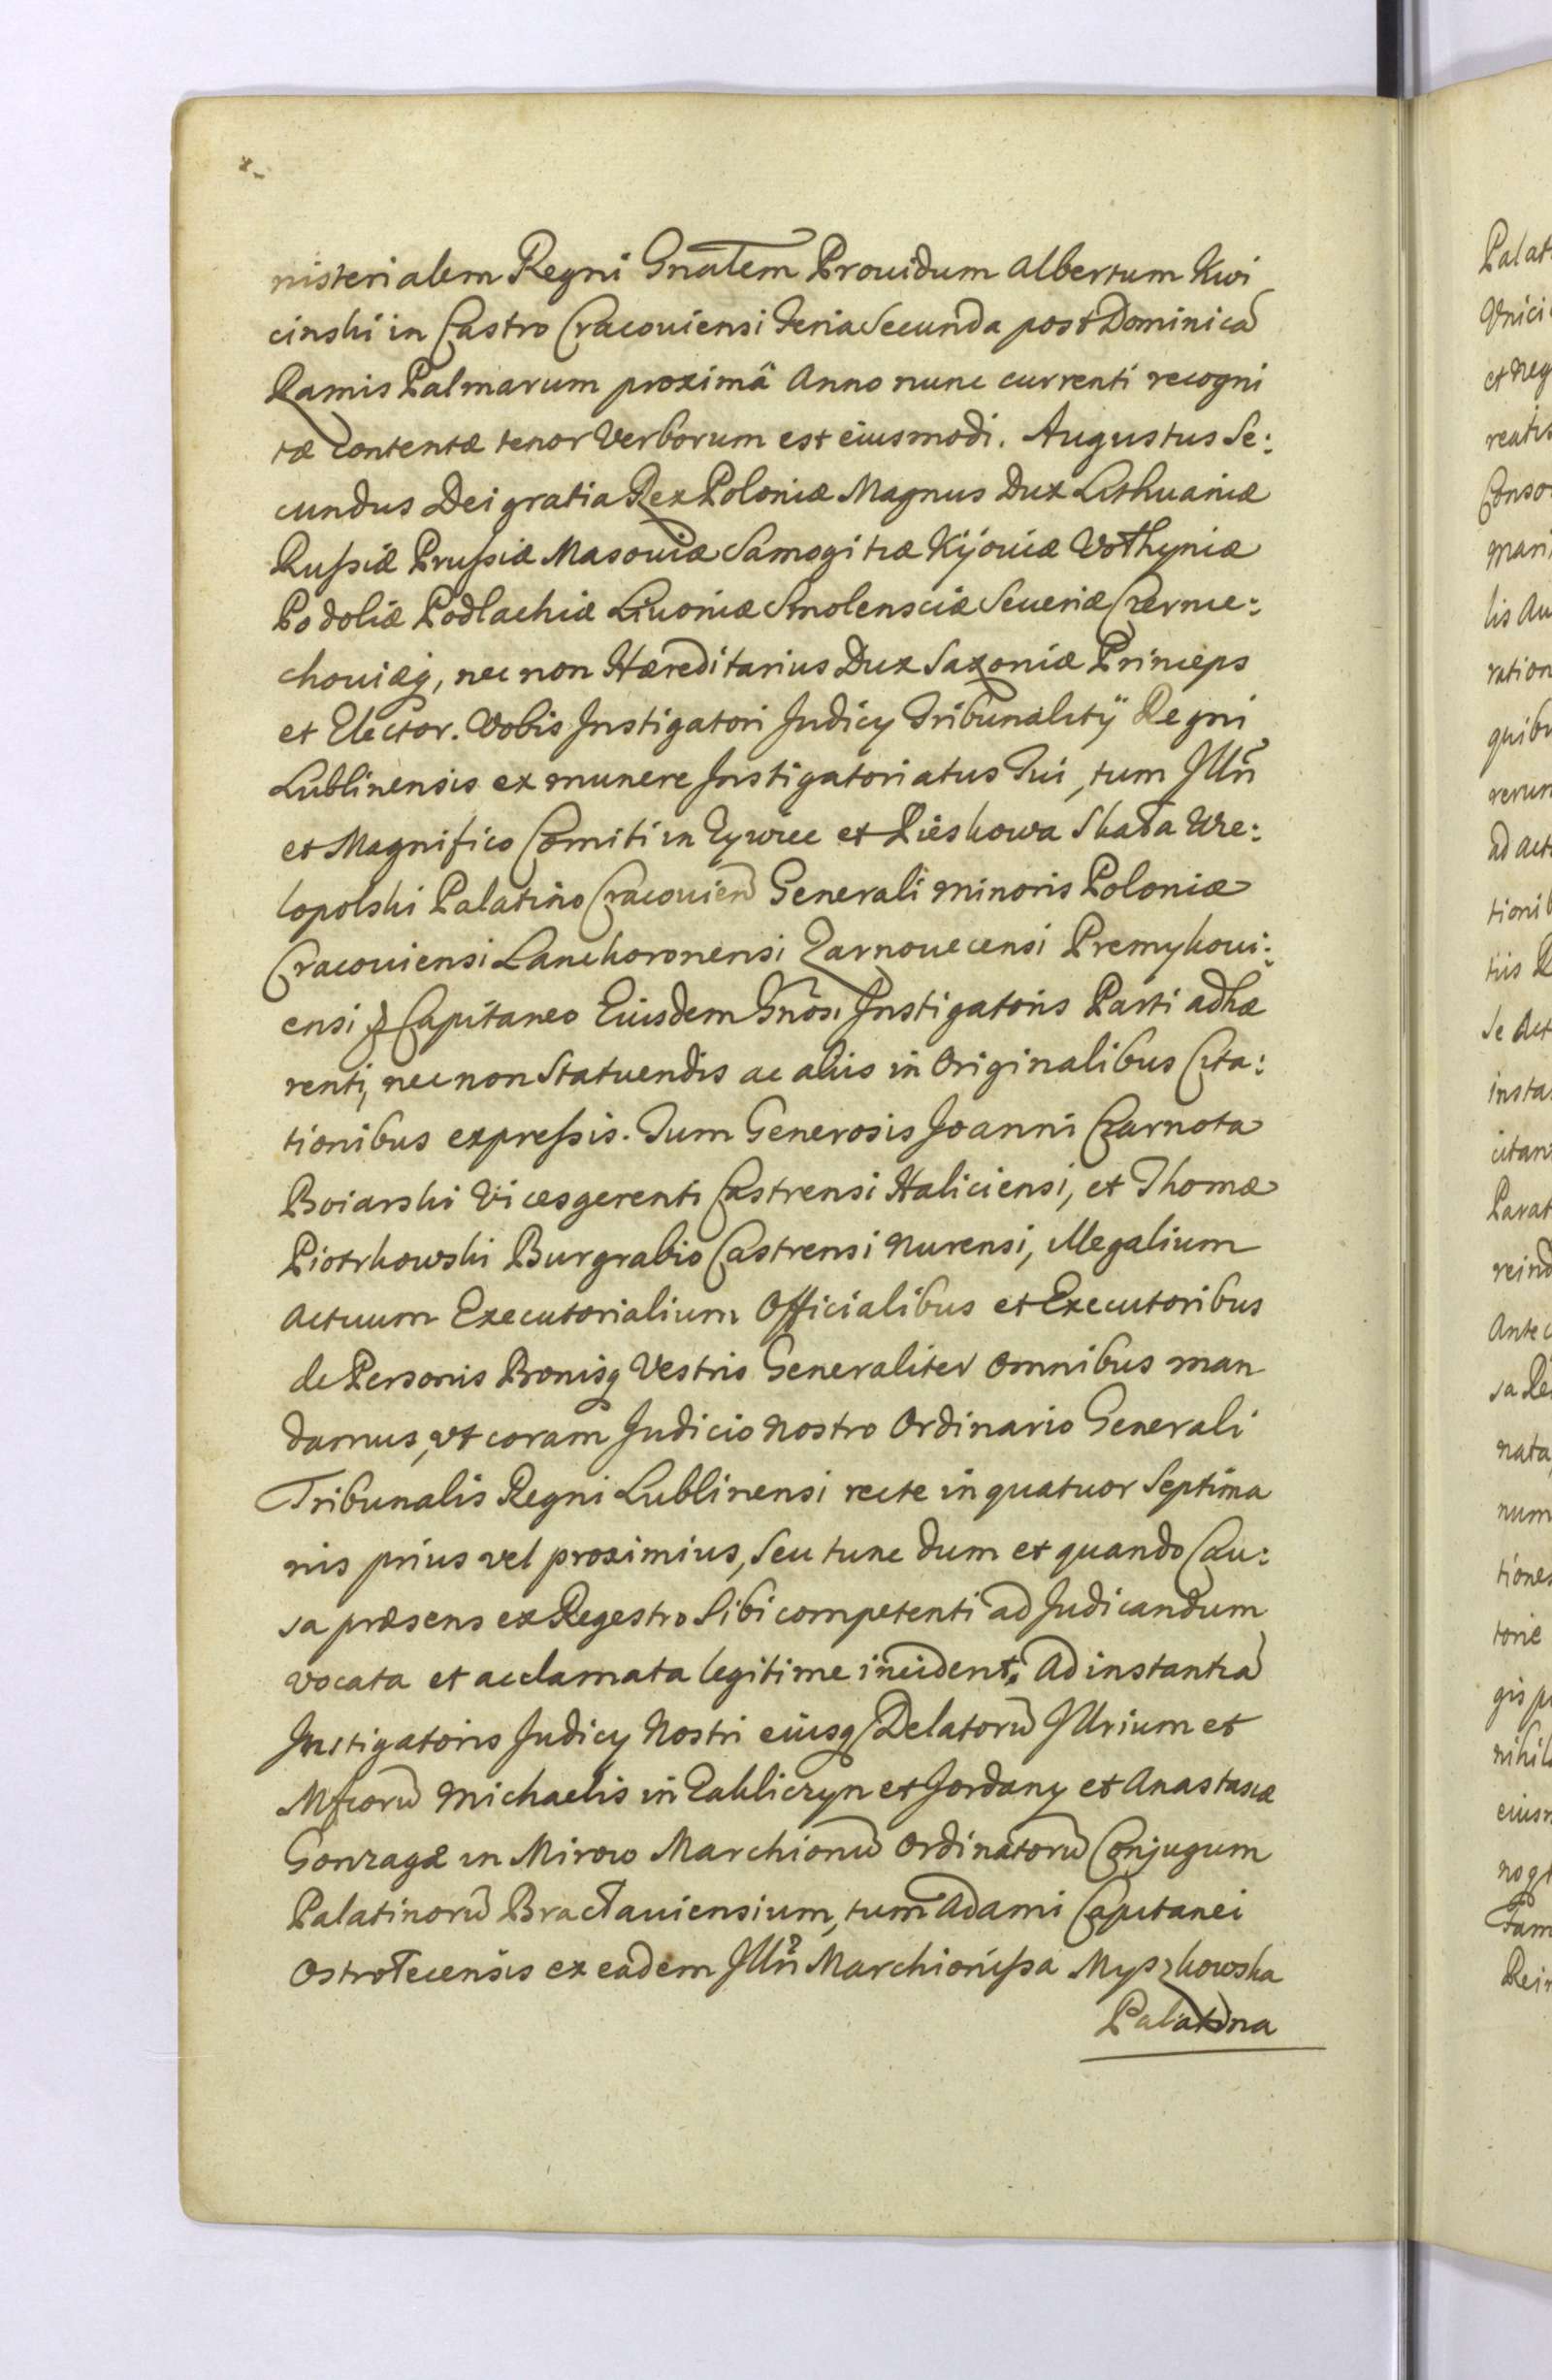 nisterialem Regni Gnalem Prouidum Albertum Kwi
cinski in Castro Cracouiensi Feria Secunda post Dominicã
Ramis Palmarum proximã Anno nunc currenti recogni
tæ Contentæ tenor Verborum est eiusmodi. Augustus Se:
cundus Dei gratia Rex Poloniæ Magnus Dux Lithuaniæ
Russiæ Prussiæ Masouiæ Samogitiæ Kijouiæ Volhyniæ
Podoliæ Podlachiæ Liuoniæ Smolensciæ Seueriæ Czernie:
chouiæq, nec non Hæreditarius Dux Saxoniæ Princeps
et Elector. Vobis Instigatori Judicy Tribunalitÿ Regni
Lublinensis ex munere Instigatoriatus Sui, tum Illñ
et Magnifico Comiti in Zywiec et Pieskowa Skała Wie:
lopolski Palatino Cracouien̄ Generali minoris Poloniæ
Cracouiensi Lanckoronensi Zarnouecensi Premykoui:
ensi & Capitaneo Eiusdem Gnosi Instigatoris Parti adhæ
renti, nec non Statuendis ac aliis in Originalibus Cita:
tionibus expressis. Tum Generosis Joanni Czarnota
Boiarski Vicesgerenti Castrensi Haliciensi, et Thomæ
Piotrkowski Burgrabio Castrensi Nurensi, Illegalium
Actuum Executorialium Officialibus et Executoribus
de Personis Bonisq Vestris Generaliter omnibus man
damus, vt coram Judicio Nostro Ordinario Generali
Tribunalis Regni Lublinensi recte in quatuor Septima
nis prius vel proximius, Seu tunc dum et quando Cau:
sa præsens ex Regestro Sibi competenti ad Judicandum
vocata et acclamata legitime inciderit. Ad instantiã
Instigatoris Judicy Nostri eiusq Delatorũ Illrium et
Mficorũ Michaelis in Zakliczyn et Jordany et Anastasiæ
Gonzagæ in Mirow Marchionũ Ordinatorũ Conjugum
Palatinorũ Bracłauiensium, tum Adami Capitanei
Ostrołecensis ex eadem Illñ Marchionissa Myszkowska
Palatina
Palat
Vnici
et neg
reatis
Conso
mari
lis Au
ration
quibu
rerum
ad act
tionib
tiis R
se Act
insta
citan
Parat
reind
Ante
sa Re
nata
num
tiones
torie
gis p
nihil
eius
noq
Tam
Rei